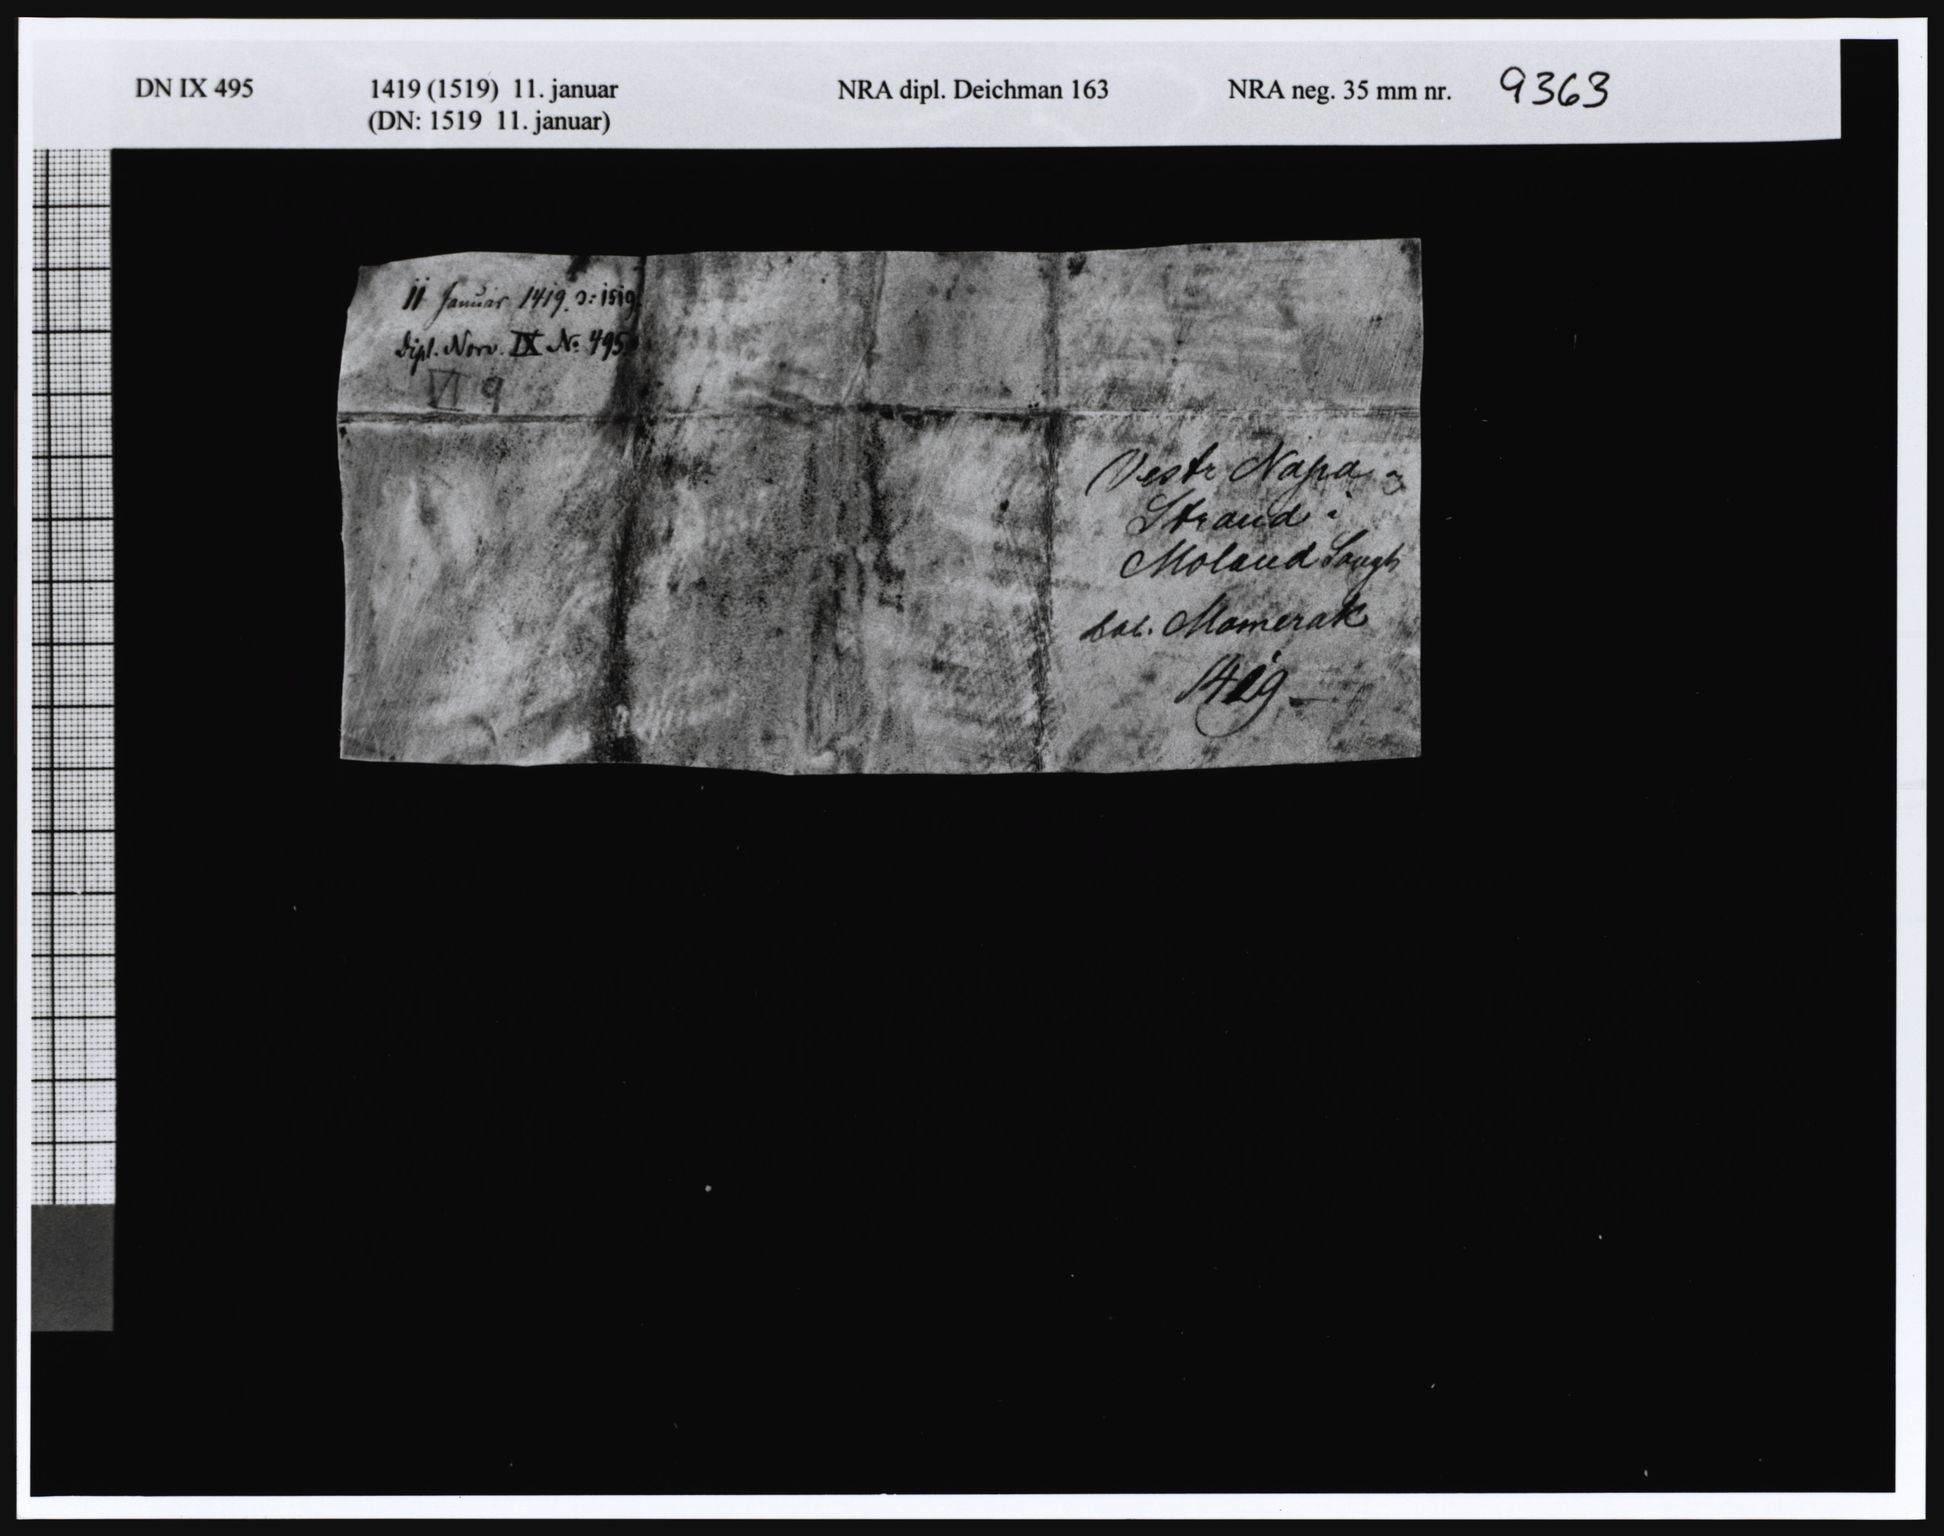 DN IX 495 1419 (1519) 11. januar NRA dipl. Deichman 163 NRA neg. 35 mm nr. 9363
(DN: 1519 11. januar)
11 Januar 1419. ɔ: 1519
Dipl. Norv. IX No 495
VI 9
Vestr Napa
Strand i
Moland Songh
dat. Momerak
1419